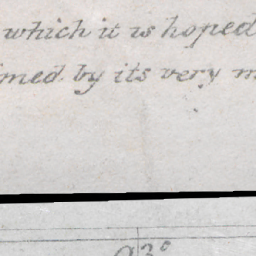 which it is hoped
by its very
93°